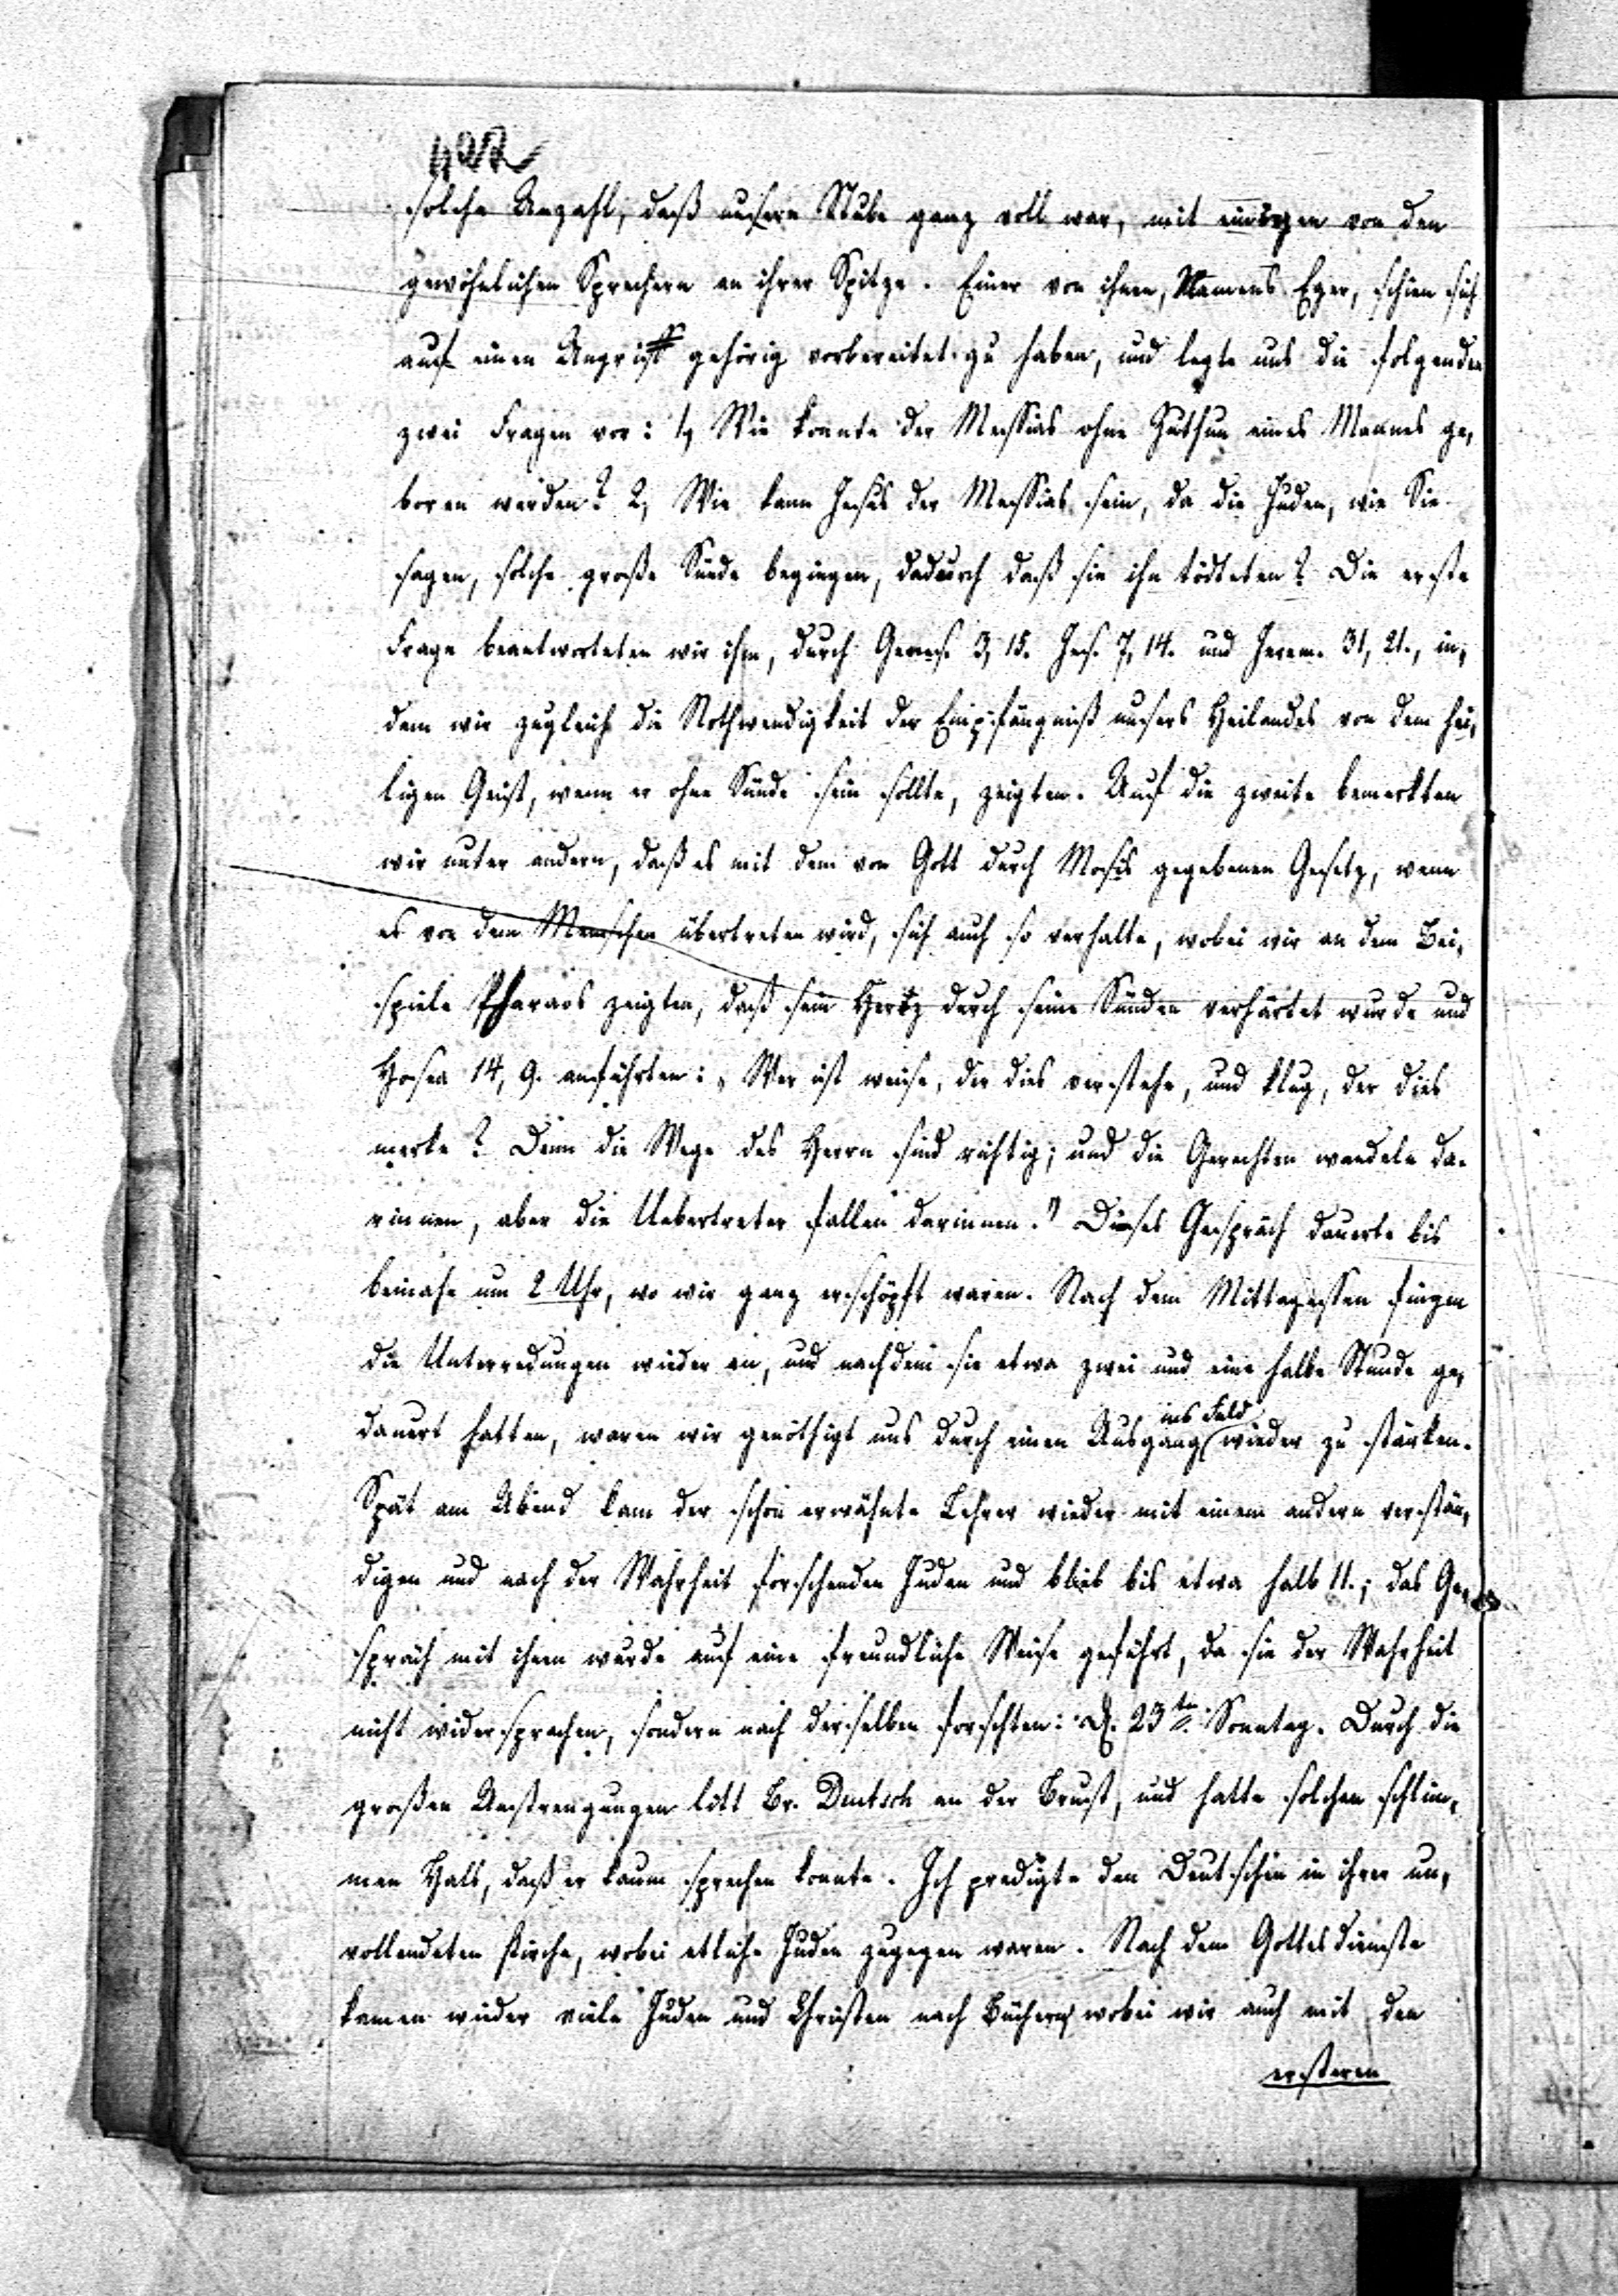 422
solche Anzahl, daß unsere Stube ganz voll war, mit einigen von den
gewöhnlichen Sprechern an ihrer Spitze. Einer von ihnen, Namens Eger, schien sich
auf einen Angriff gehörig vorbereitet zu haben, und legte uns die folgenden
zwei Fragen vor: 1, Wie konnte der Messias ohne Zuthun eines Mannes ge,
boren werden? 2, Wie kann Jesus der Messias sein, da die Juden, wie Sie
sagen, solche große Sünde begingen, dadurch daß sie ihn tödteten? Die erste
Frage beantworteten wir ihm, durch Genes. 3, 15. Jes. 7, 14. und Jerem. 31, 21., in,
dem wir zugleich die Nothwendigkeit der Empfängniß unsers Heilandes von dem hei,
ligen Geist, wenn er ohne Sünde sein sollte, zeigten. Auf die zweite bemerkten
wir unter andern, daß es mit dem von Gott durch Mosis gegebenen Gesetz, wenn
es von dem Menschen übertreten wird, sich auch so verhalte, wobei wir an dem Bei,
spiele Pharaos zeigten, daß sein Hertz durch seine Sünden verhärtet wurde und
Hosea 14, 9. anführten: „Wer ist weise, der dies verstehe, und klug, der dies
merke? Denn die Wege des Herrn sind richtig; und die Gerechten wandeln da-
rinnen, aber die Uebertreter fallen darinnen." Dieses Gespräch dauerte bis
beinahe um 2 Uhr, wo wir ganz erschöpft waren. Nach dem Mittagessen fingen
die Unterredungen wieder an, und nachdem sie etwa zwei und eine halbe Stunde ge,
dauert hatten, waren wir genöthigt uns durch einen Ausgang ins Feld wieder zu stärken.
Spät am Abend kam der schon erwähnte Lehrer wieder mit einem andern verstän,
digen und nach der Wahrheit forschenden Juden und blieb bis etwa halb 11.; das Ge,
spräch mit ihnen wurde auf eine freundliche Weise geführt, da sie der Wahrheit
nicht widersprachen, sondern nach derselben forschten. D. 23ten Sonntag. Durch die
großen Anstrengungen litt Br. Deutsch an der Brust, und hatte solchen schlim,
men Hals, daß er kaum sprechen konnte. Ich predigte den Deutschen in ihrer un,
vollendeten Kirche, wobei etliche Juden zugegen waren. Nach dem Gottesdienste
kamen wieder viele Juden und Christen nach Büchern wobei wir auch mit den
ersteren